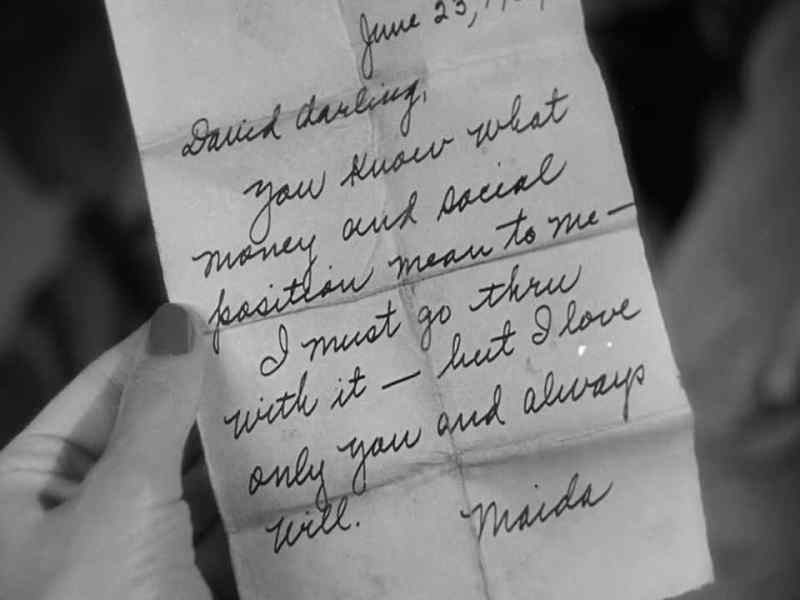 June 23,
David darling,
you know what
money and social
position mean to me —
I must go thru
with it — but I love
only you and always
will. Maida